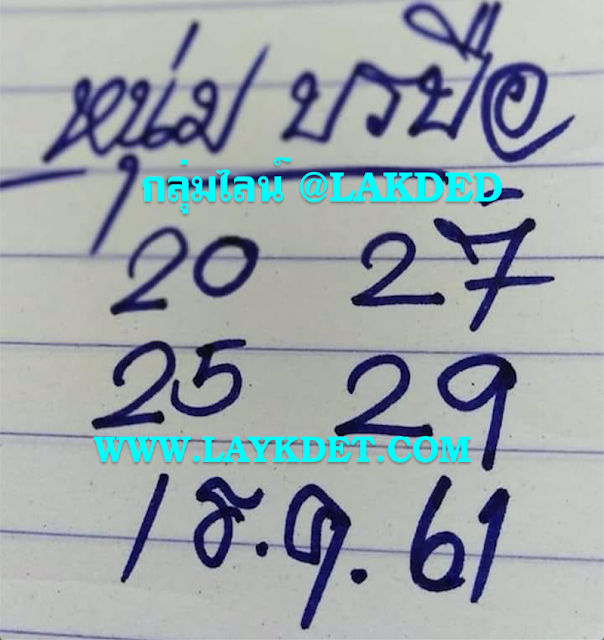 หนุ่ม บรบือ
กลุ่มไลน์ @LAKDED
20 27
25 29
WWW.LAYKDET.COM
1 ธ.ค. 61